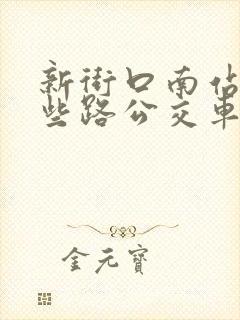 新街口南站
些路公交車
金元寶